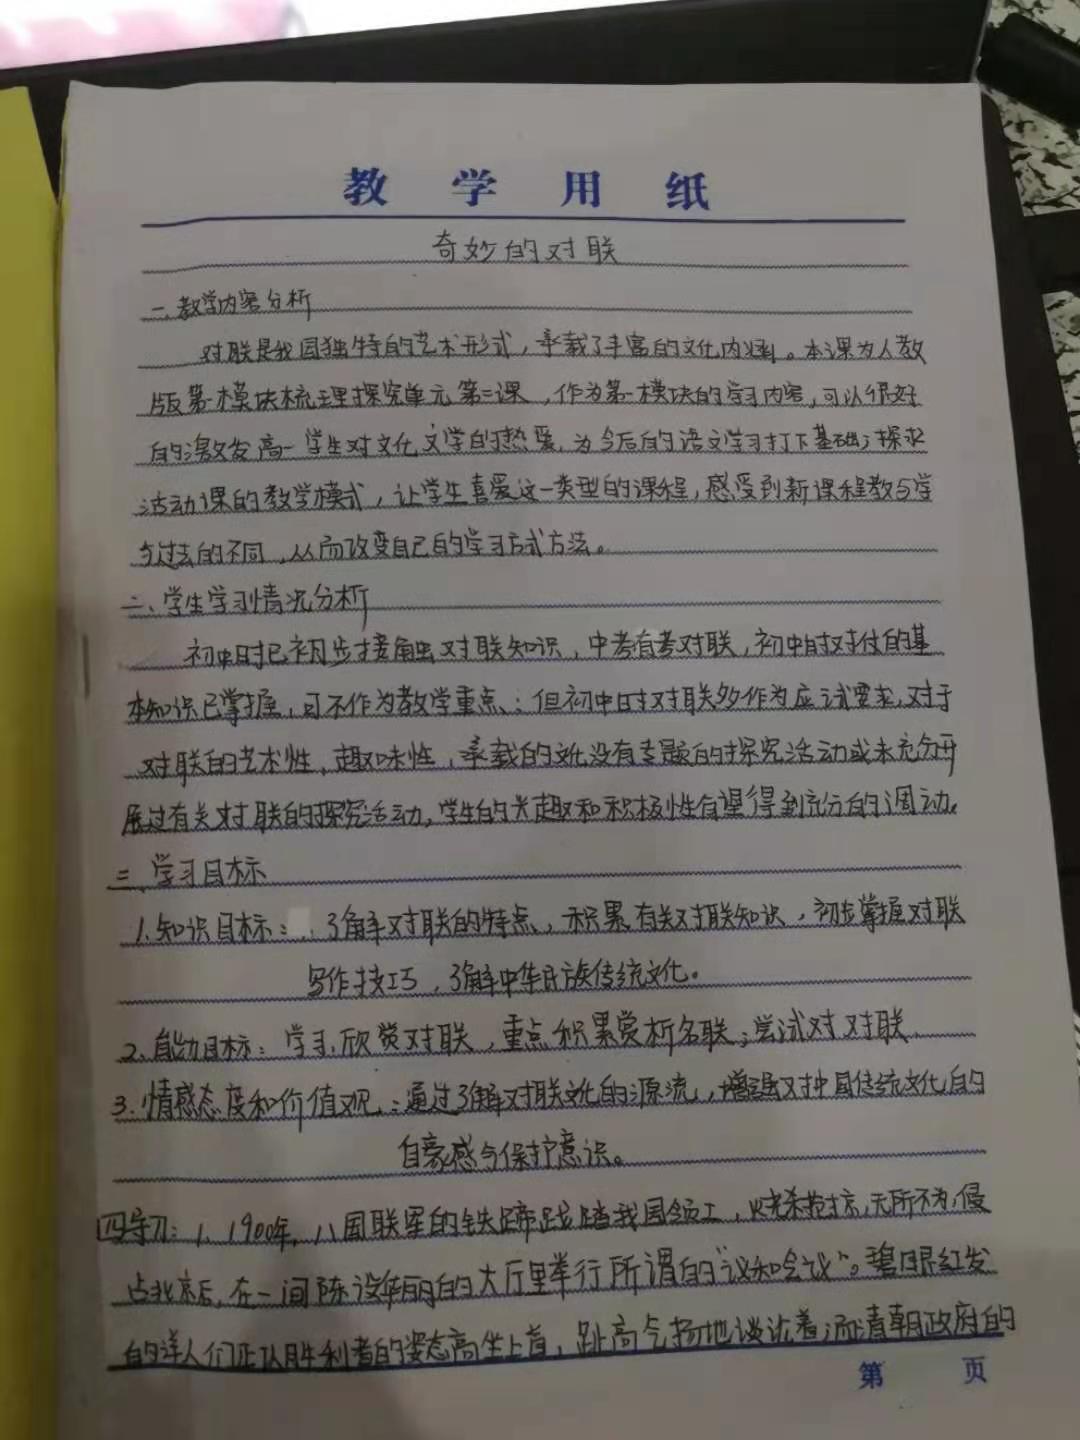 教学用纸
奇妙的对联
一、教学内容分析
对联是我国独特的艺术形式，承载了丰富的文化内涵。本课为人教
版第一模块梳理探究单元第二课，作为第一模块的学习内容，可以很好
的激发高一学生对文化文学的热爱，为今后的语文学习打下基础；探求
活动课的教学模式，让学生喜爱这一类型的课程，感受到新课程教与学
与过去的不同，从而改变自己的学习方式方法。
二、学生学习情况分析
初中时已初步接触对联知识，中考有考对联，初中时对对仗的基
本知识已掌握，可不作为教学重点；但初中时对对联多作为应试要求，对于
对联的艺术性，趣味性，承载的文化没有专题的探究活动或未充分开
展过有关对联的探究活动，学生的兴趣和积极性有望得到充分的调动。
三、学习目标
1.知识目标：了解对联的特点，积累有关对联知识，初步掌握对联
写作技巧，了解中华民族传统文化。
2.能力目标：学习欣赏对联，重点积累赏析名联；尝试对对联
3.情感态度和价值观：通过了解对联文化的源流，增强对中国传统文化的
自豪感与保护意识。
四导入：1.1900年，八国联军的铁蹄践踏我国领土，烧杀掠抢，无所不为，侵
占北京后，在一间陈设华丽的大厅里举行所谓的“议和会议”。碧眼红发
的洋人们正以胜利者的姿态高坐上首，趾高气扬地谈论着；而清朝政府的
第 页